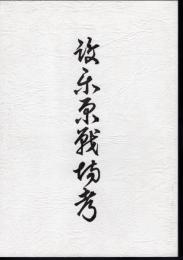 設楽原戦場考